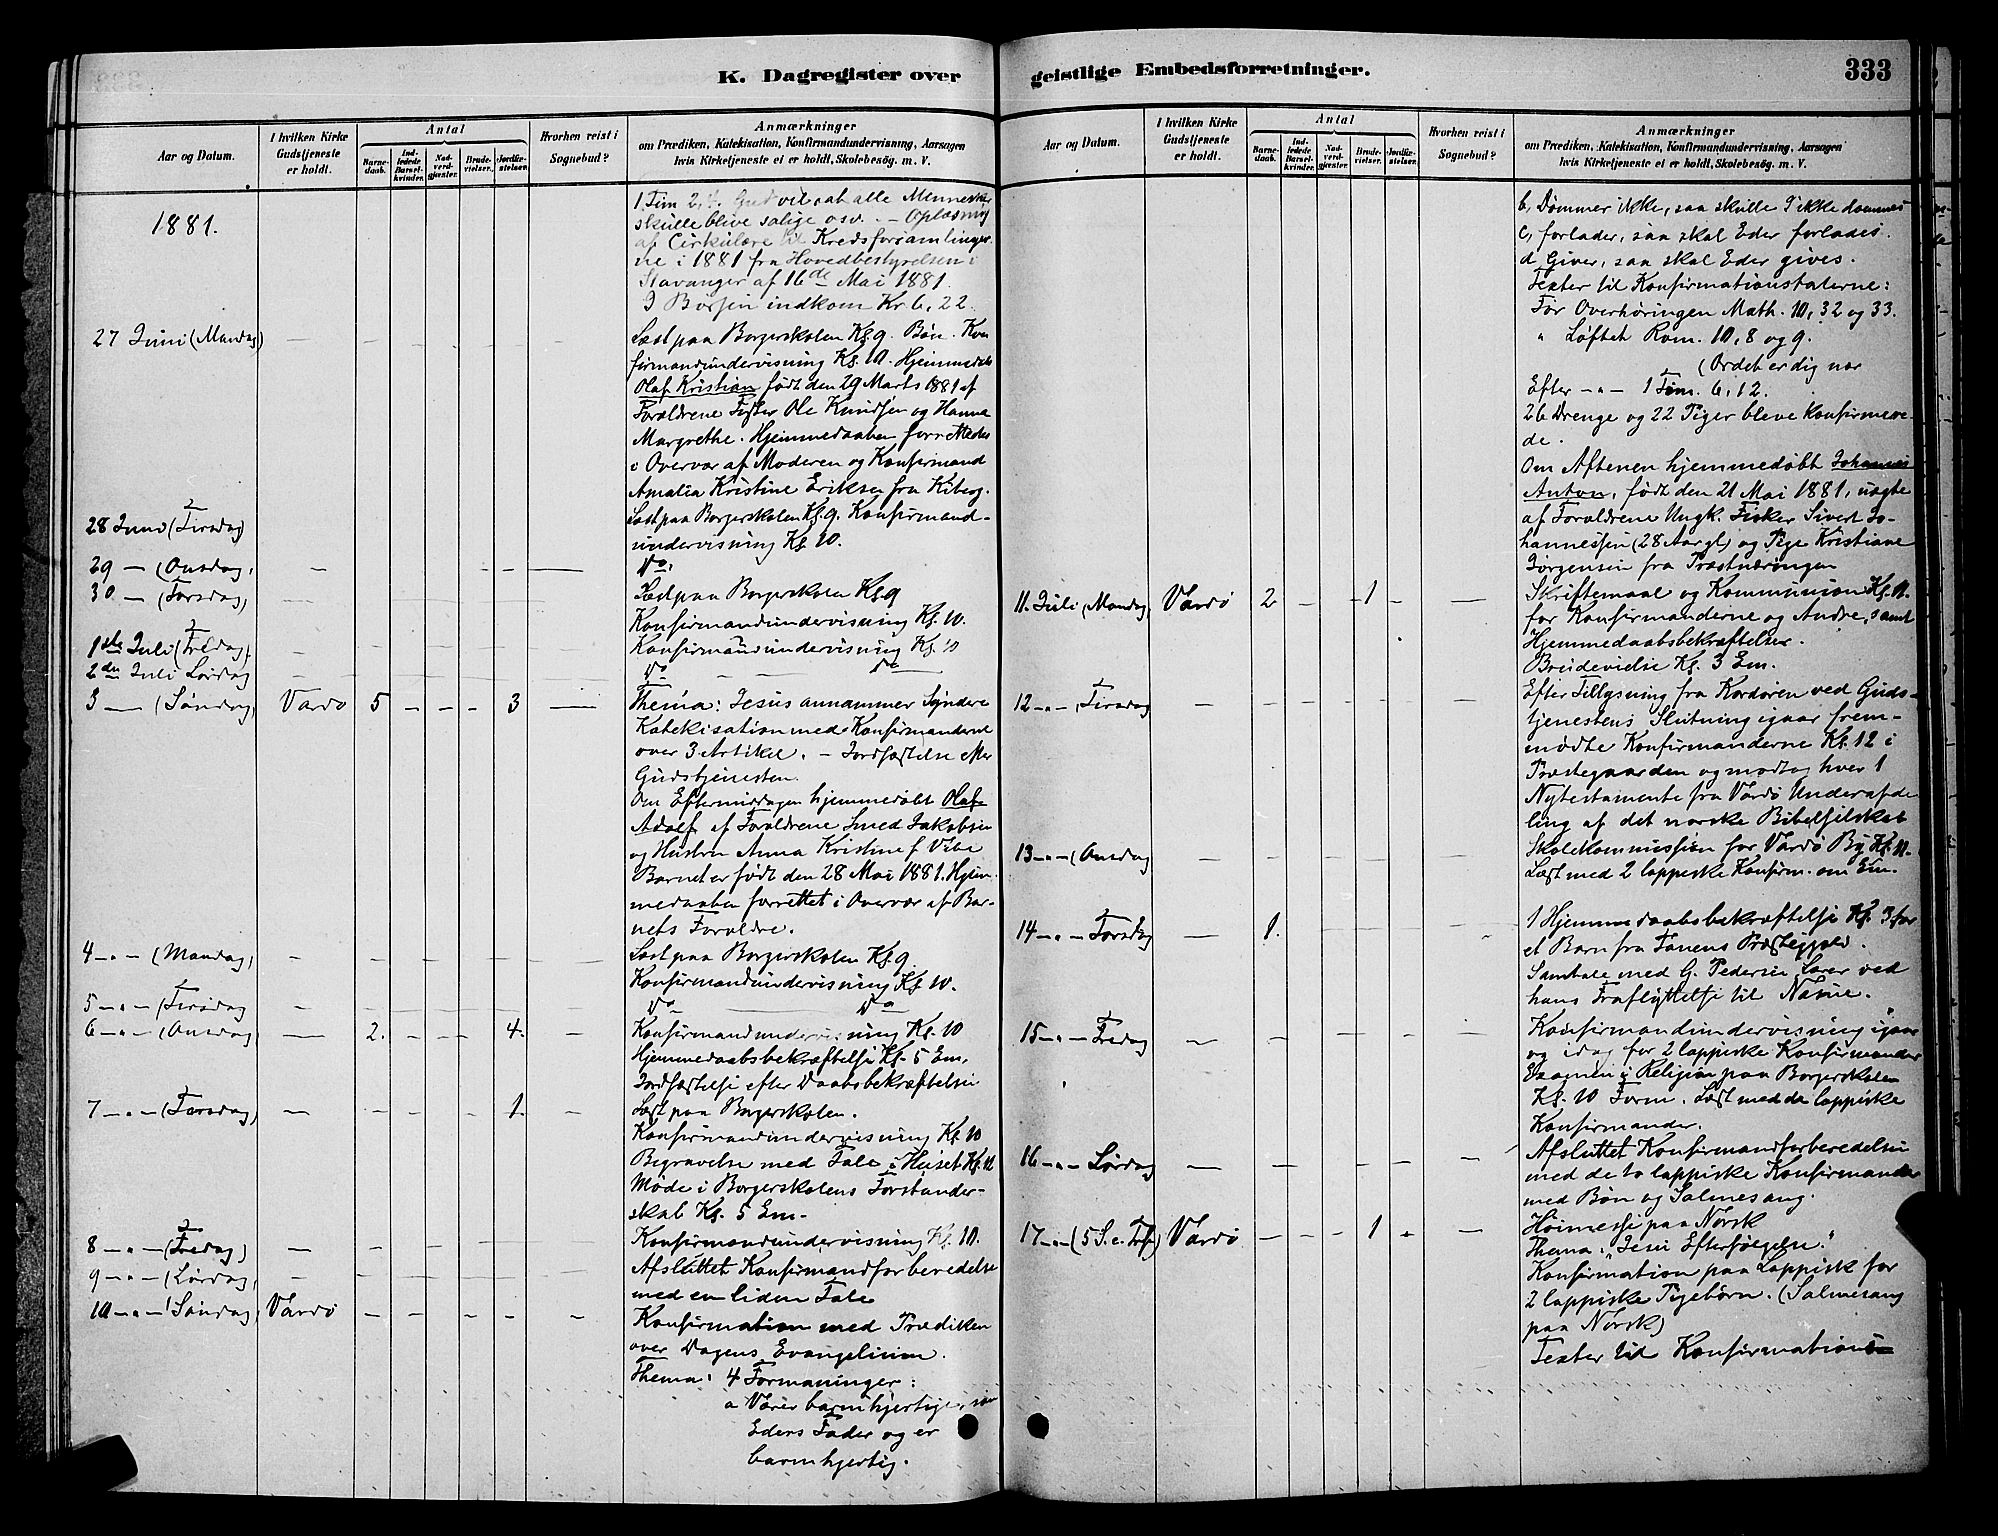 K. Dagregister over
Aar og Datum.
I hvilken Kirke
Gudstjeneste
er holdt.
Antal
Barne-
daab.
Ind-
ledede
Barsel-
kvinder.
Nad-
verd-
gjæster.
Brude-
vielser.
Jordfæ-
stelser.
Hvorhen reist i
Sognebud?
Anmærkninger
om Prædiken, Katekisation, Konfirmandundervisning, Aarsagen
hvis Kirketjeneste ei er holdt, Skolebesøg. m. V.
1881.
1 Tim 2, 4. Gud vil at alle Mennesker
skulle blive salige osv. – Oplæsning
af Cirkulære til Kredsforsamlinger
ne i 1881 fra Hovedbestyrelsen i
Stavanger af 16de Mai 1881.
I Børsen indkom Kr. 6, 22.
27 Juni (Mandag) Læst paa Borgerskolen Kl. 9. Bøn. Kon
firmandundervisning Kl. 10. Hjemmedøbt
Olaf Kristian født den 29 Marts 1881 af
Forældrene Fisker Ole Knudsen og Hanna
Margrethe. Hjemmedaaben forr
i Overvær af Moderen og Konfirmand
Amalia Kristine Eriksen fra Kiberg.
28 Juni (Tirsdag) Læst paa Borgerskolen Kl. 9. Konfirmand-
undervisning Kl. 10.
29 — (Onsdag) Do.
30 — (Torsdag) Læst paa Borgerskolen Kl. 9
Konfirmandundervisning Kl. 10.
1ste Juli (Fredag) Konfirmandundervisning Kl. 10
2den Juli Lørdag Do — — Do
3 — (Søndag) Vardø 5 — — — 3 — Thema: Jesus annammer Syndere
Katekisation med Konfirmanderne
over 3 Artikel. – Jordfæstelse efter
Gudstjenesten.
Om Eftermiddagen hjemmedøbt Olaf
Adolf af Forældrene Smed Jakobsen
og Hustru Anna Kristine f. Vibe
Barnet er født den 28 Mai 1881. Hjem
medaaben forrettet i Overvær af Bar-
nets Forældre.
4 — " — (Mandag) Læst paa Borgerskolen Kl. 9.
Konfirmandundervisning Kl. 10.
5 — " — (Tirsdag Do — Do
6 — " — (Onsdag — 2. — — — 4. — Konfirmandundervisning Kl. 10
Hjemmedaabsbekræftelse Kl. 5 Em.
Jordfæstelse efter Daabsbekræftelsen
7 — " — (Torsdag) — — — — — 1. — Læst paa Borgerskolen.
Konfirmandundervisning Kl. 10
Begravelse med Tale i Huset Kl. 12
Møde i Borgerskolens Forstander-
skab Kl. 5 Em.
8 — " — (Fredag) Konfirmandundervisning Kl. 10.
9 — " — (Lørdag) Afsluttet Konfirmandforberedelse
med en liden Tale
10 — " — (Søndag) Vardø — — — — — — Konfirmation med Prædiken
over Dagens Evangelium.
Thema: 4 Formaninger:
a Værer barmhjertige, som
Eders Fader og er
barmhjertig.
geistlige Embedsforretninger.
333
Aar og Datum.
I hvilken Kirke
Gudstjeneste
er holdt.
Antal
Barne-
daab.
Ind-
ledede
Barsel-
kvinder.
Nad-
verd-
gjæster.
Brude-
vielser.
Jordfæ-
stelser.
Hvorhen reist i
Sognebud?
Anmærkninger
om Prædiken, Katekisation, Konfirmandundervisning, Aarsagen
hvis Kirketjeneste ei er holdt, Skolebesøg. m. V.
b, Dømmer ikke, saa skulle I ikke dømmes
c, forlader, saa skal Eder forlades.
d Giver, saa skal Eder gives.
Texter til Konfirmationstalerne:
Før Overhøringen Math. 10, 32 og 33.
" Løftet Rom. 10, 8 og 9.
(Ordet er dig nær
Efter — " — 1 Tim. 6, 12.
26 Drenge og 22 Piger bleve konfirmere-
de.
Om Aftenen hjemmedøbt Johannes
Anton, født den 21 Mai 1881, uægte
af Forældrene Ungk. Fisker Sivert Jo-
hannessen (28 Aar gl) og Pige Kristiane
Jørgensen fra Præstnæringen
11. Juli (Mandag) Vardø 2 — — 1 — — Skriftemaal og Kommunion Kl. 11.
for Konfirmanderne og Andre, samt
Hjemmedaabsbekræftelser.
Brudevielse Kl. 3 Em.
12 — " — (Tirsdag Efter Tillysning fra Kordøren ved Guds-
tjenestens Slutning igaar frem-
mødte Konfirmanderne Kl. 12 i
Præstegaarden og modtog hver 1
Nytestamente fra Vardø Underafde
ling af det norske Bibelselskab
13 — " — (Onsdag Skolekommission for Vardø By Kl. 11.
Læst med 2 lappiske Konfirm. om Em.
14 — " — Torsdag — 1. 1 Hjemmedaabsbekræftelse Kl. 3 for
et Barn fra Tanens Præstegjeld.
Samtale med G. Pedersen Lærer ved
hans Fraflyttelse til Næsne.
15 — " — Fredag Konfirmandundervisning igaar
og idag for 2 lappiske Konfirmander
Examen i Religion paa Borgerskolen
Kl. 10 Form. Læst med de lappiske
Konfirmander.
16 — " — Lørdag Afsluttet Konfirmandforberedelsen
med de to lappiske Konfirmander
med Bøn og Salmesang.
17 — " — (5 S. e. Tref) Vardø — — — 1 — — Høimesse paa Norsk
Thema: "Jesu Efterfølgelse."
Konfirmation paa Lappisk for
2 lappiske Pigebørn. (Salmesang
paa Norsk)
Texter til Konfirmations-